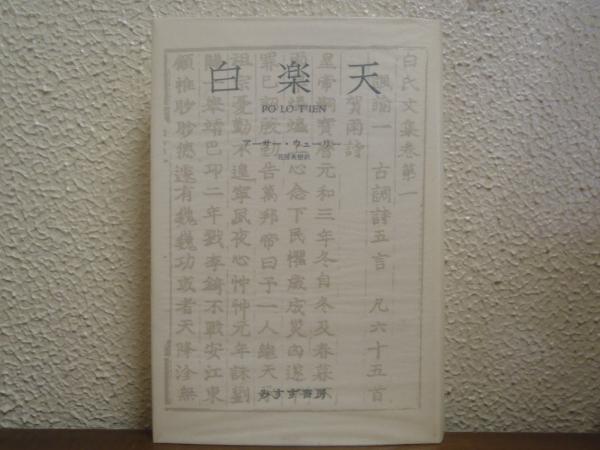 白楽天
PO LO-T'IEN
アーサー・ウェーリー
花房英樹訳
白氏文集卷第一
諷諭一 古調詩五言 凡六十五首
賀雨詩
皇帝嗣寶曆元和三年冬自冬及春暮不
心念下民懼歲成災凶遂
罪己詔殷勤告萬邦帝曰予一人繼天
祖宗憂勤不遑寧夙夜心忡忡元年誅劉
闢一舉靖巴邛二年戮李錡不戰安江東
顧惟眇眇德遽有巍巍功或者天降沴無
みすず書房